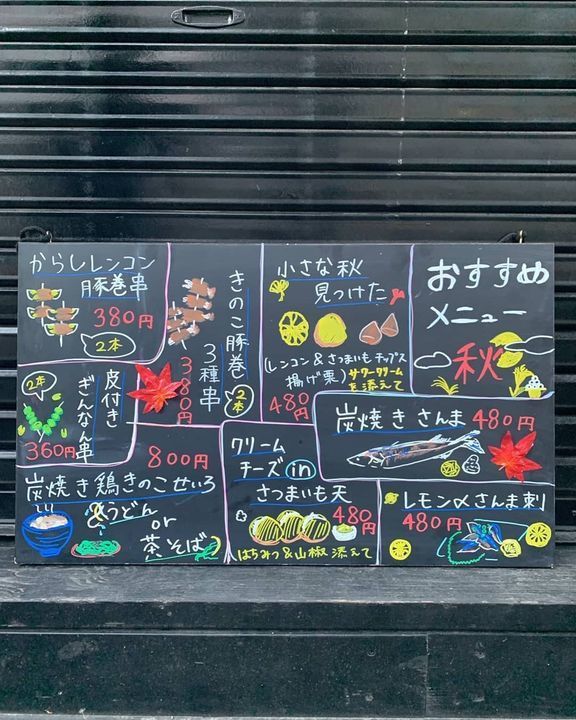 おすすめ
メニュー
秋
からしレンコン
豚巻串
380円
2本
きのこ豚巻
3種串
2本
380円
小さな秋
見つけた
(レンコン&さつまいもチップス
揚げ栗)サワークリーム
を添えて
480円
皮付き
ぎんなん串
2本
360円
炭焼きさんま 480円
800円
炭焼き鶏きのこせいろ
うどん
or
茶そば
クリーム
チーズ in
さつまいも天
480円
はちみつ&山椒添えて
レモン〆さんま刺
480円